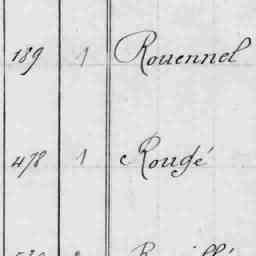 189 1 Rouennel
478 1 Rougé